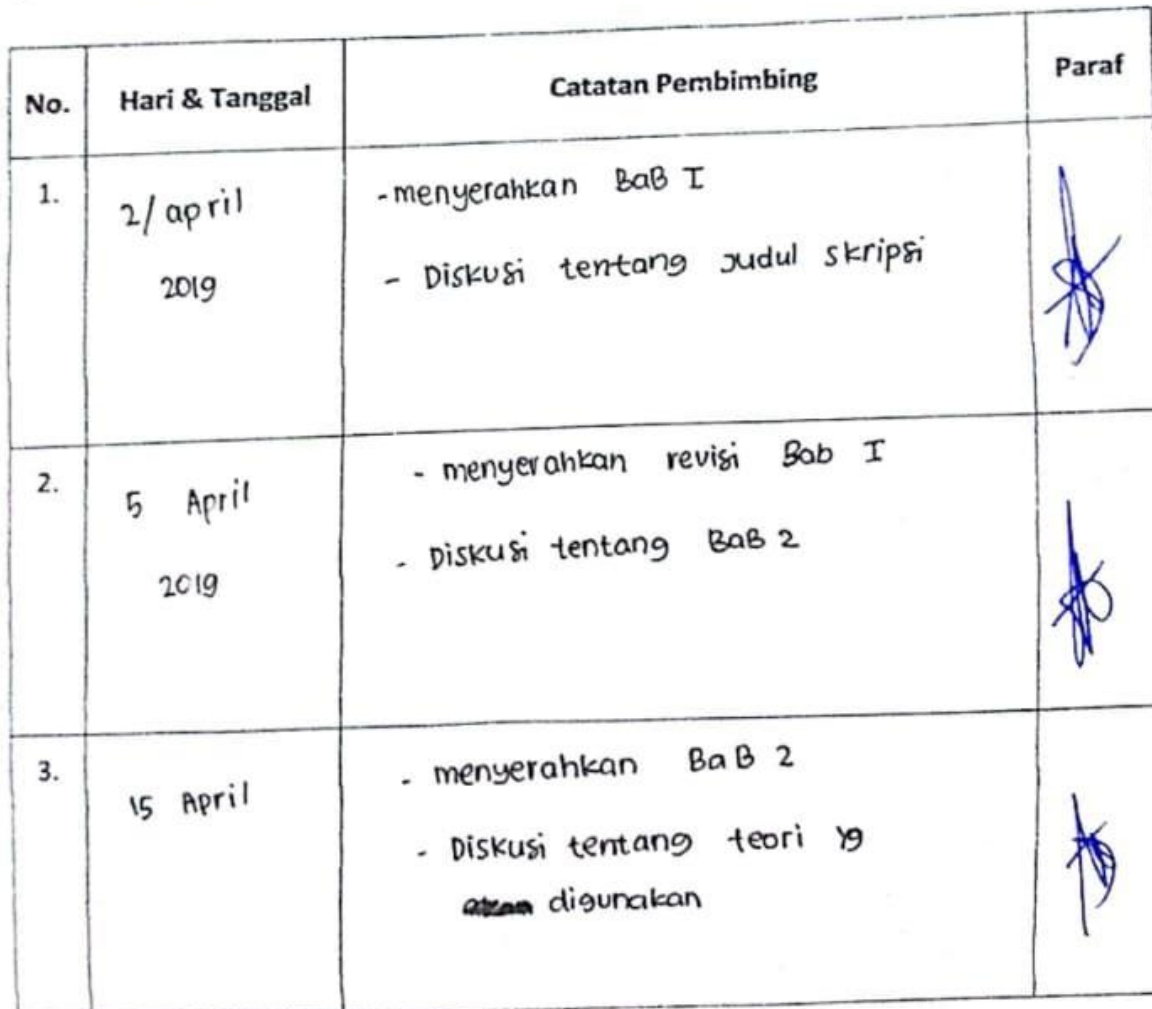 No. Hari & Tanggal Catatan Pembimbing Paraf
1. 2/april - menyerahkan BaB I
2019 - Diskusi tentang Judul skripsi
2. 5 April - menyerahkan revisi Bab I
2019 - Diskusi tentang BaB 2
3. 15 April - menyerahkan BaB 2
- Diskusi tentang teori yg
digunakan